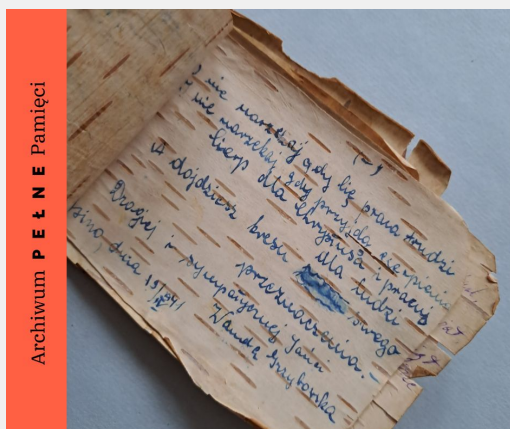 Archiwum PEŁNE Pamięci
(-)
nie narzekaj gdy cię praca trudzi
nie narzekaj gdy przyjdą cierpienia
cierp dla Chrystusa i pracuj dla ludzi
A dojdziesz kresu swego
przeznaczenia.-
Drogiej i sympatycznej Jani
Wanda Grzybowska
dnia 19/ 1941